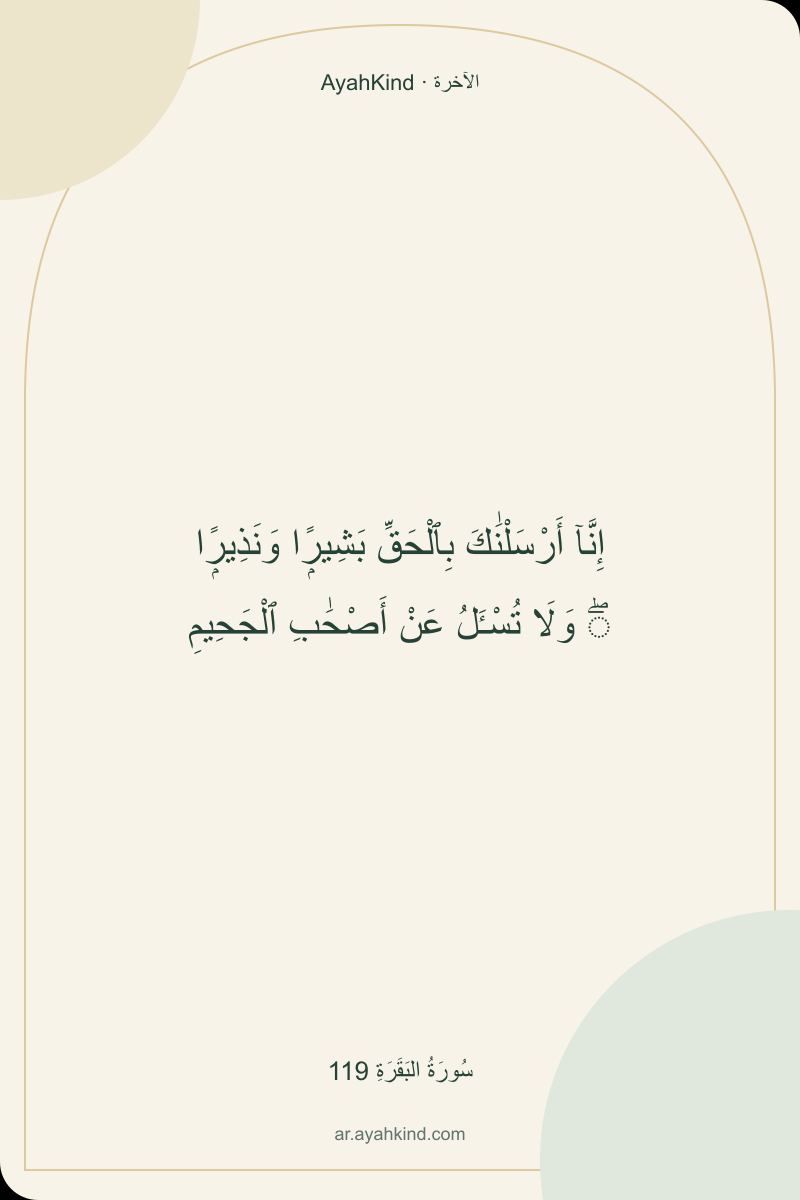 الآخرة · AyahKind
إِنَّآ أَرْسَلْنَٰكَ بِٱلْحَقِّ بَشِيرًۭا وَنَذِيرًۭا
ۖ وَلَا تُسْـَٔلُ عَنْ أَصْحَٰبِ ٱلْجَحِيمِ
سُورَةُ البَقَرَةِ 119
ar.ayahkind.com